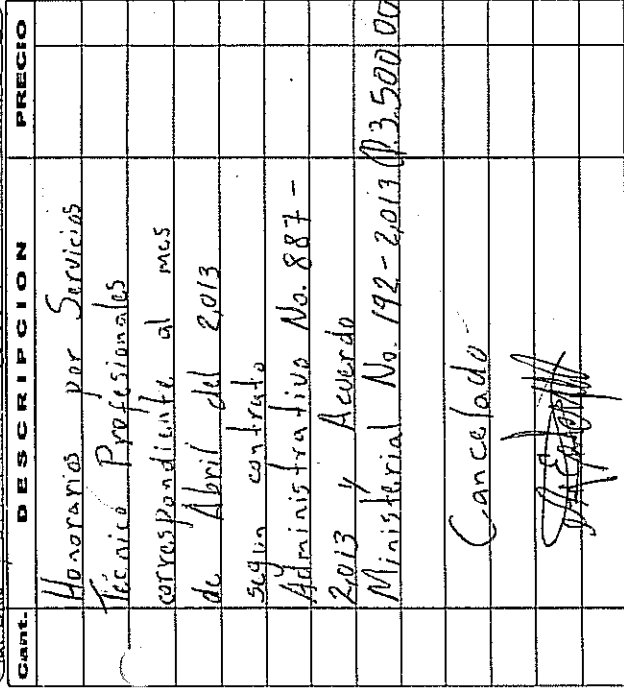 Cant. DESCRIPCION PRECIO
Honorarios por Servicios
Técnico Profesionales
correspondiente al mes
de Abril del 2,013
según contrato
Administrativo No. 887-
2,013 y Acuerdo
Ministerial No. 192-2,013 Q3.500.00
Cancelado